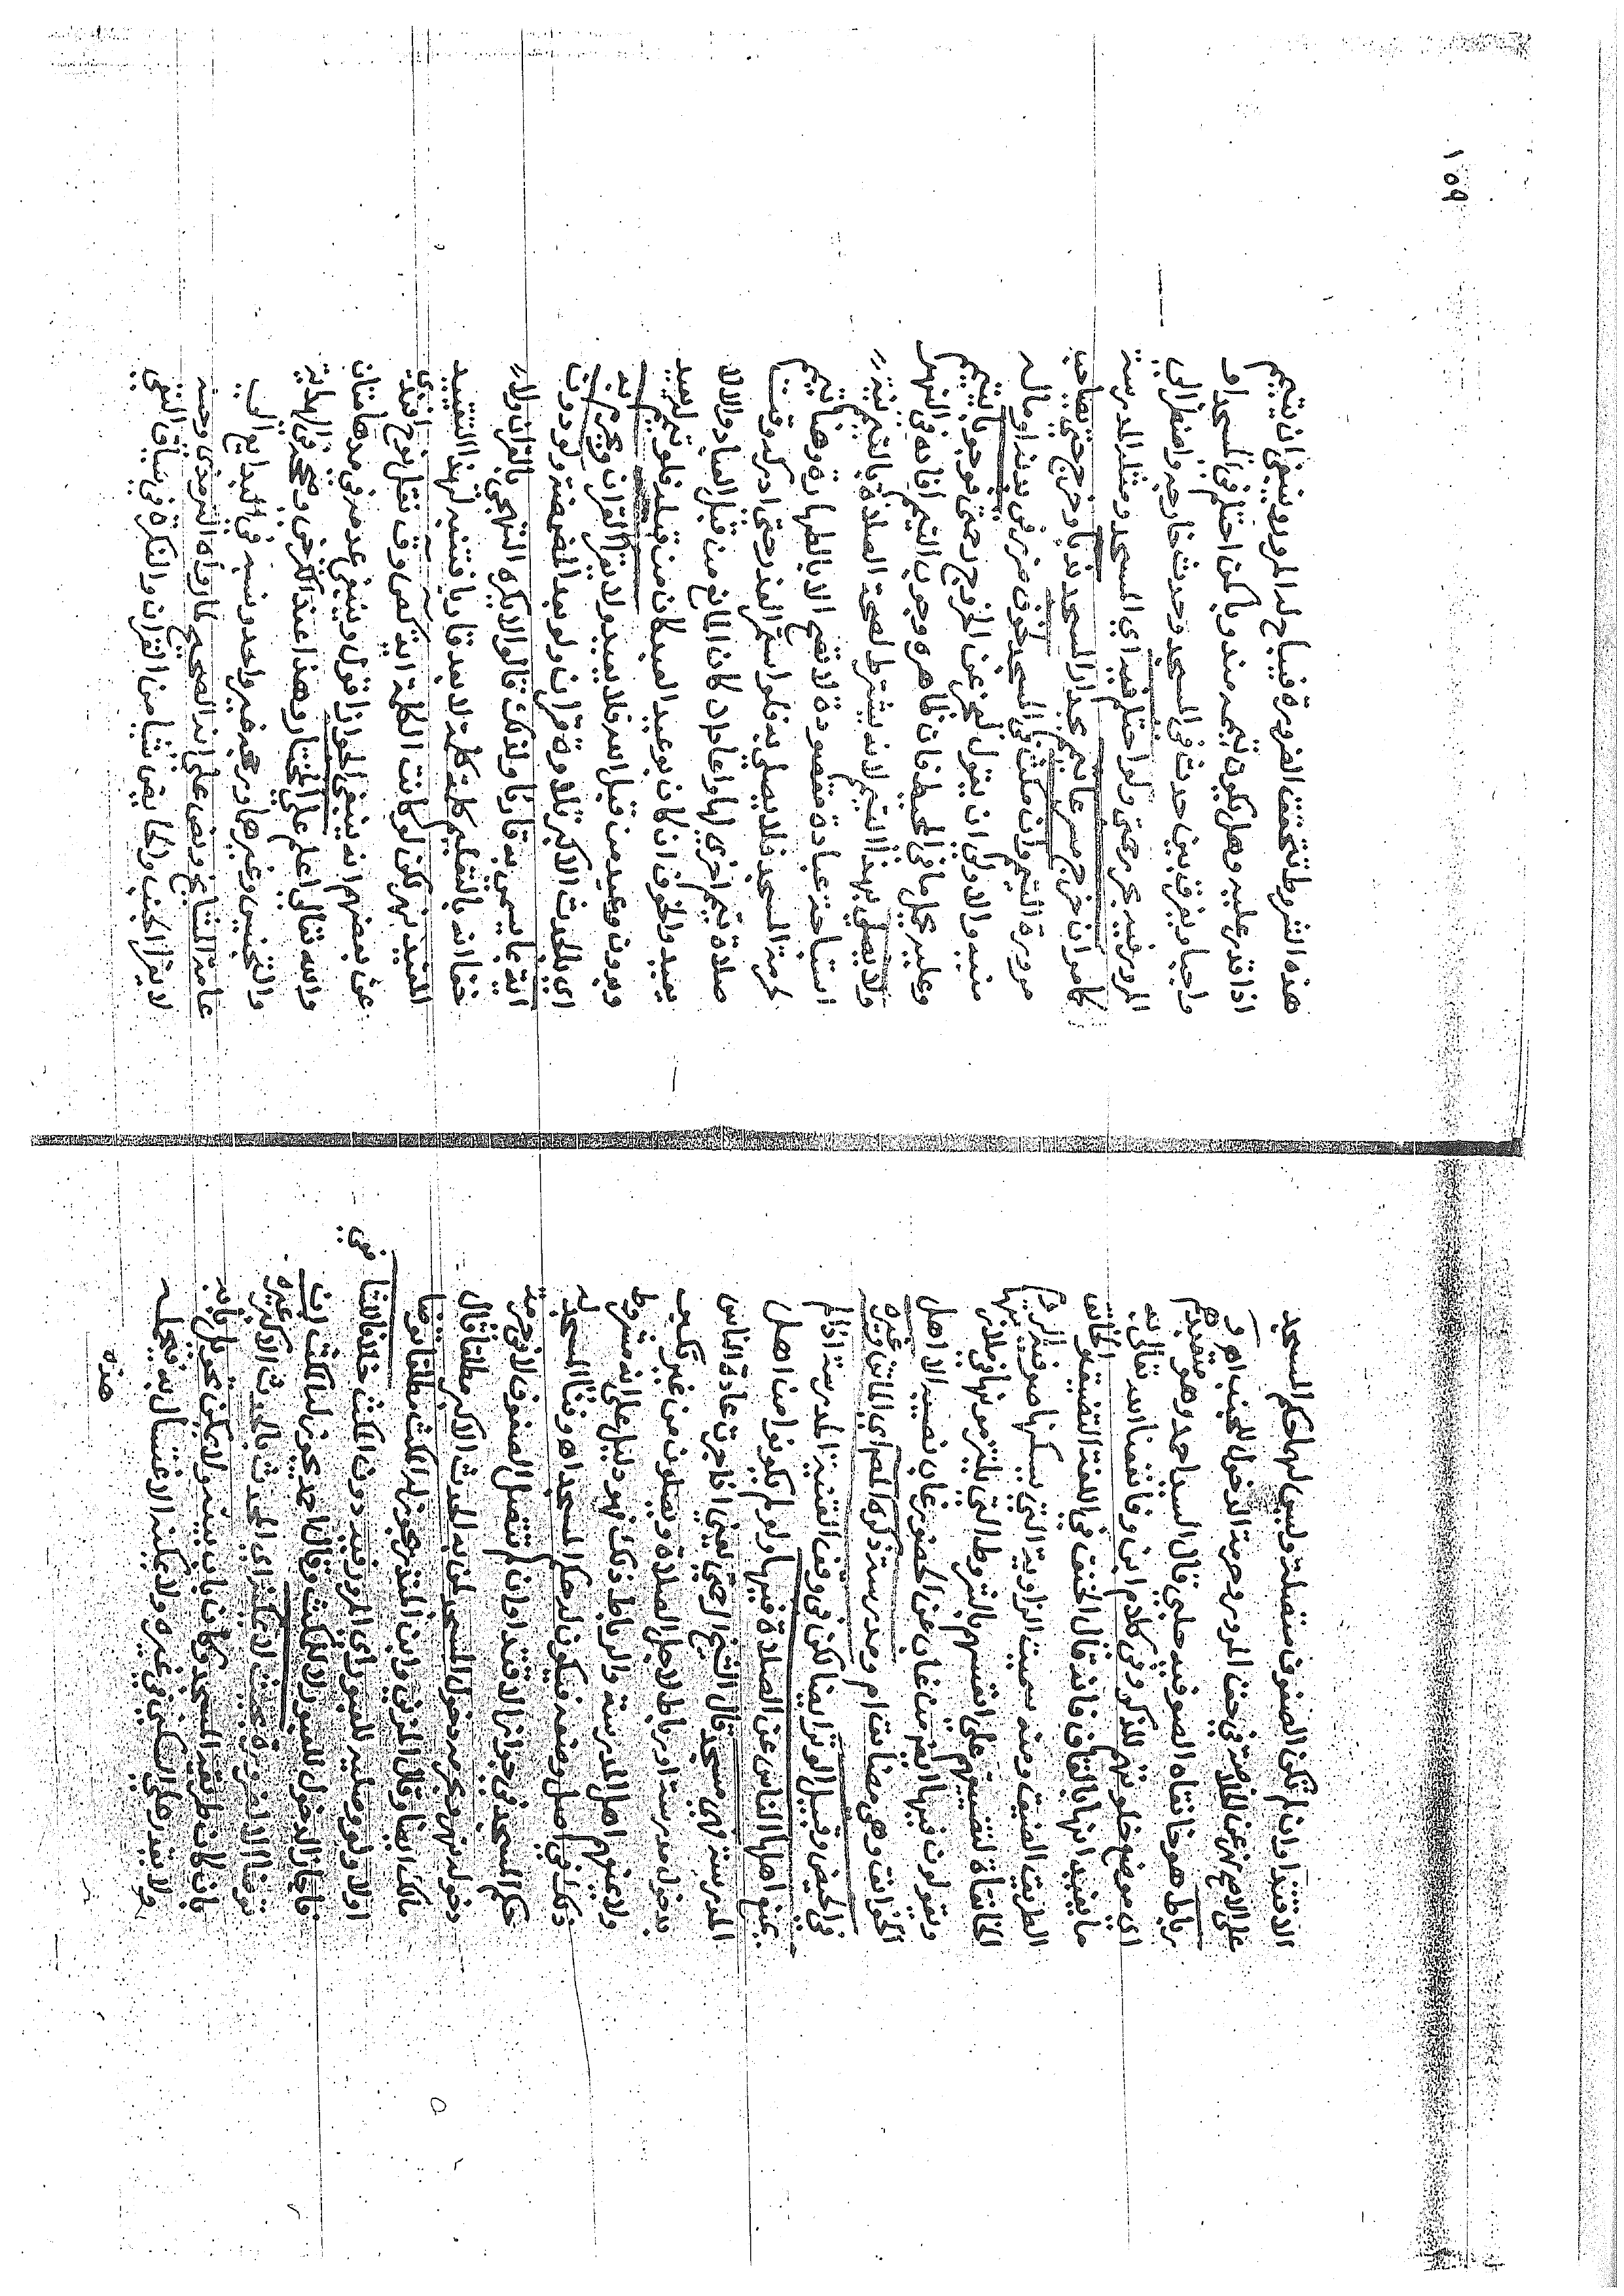 الاقتداء وان لم تكن الصفوف متصلة وليس لها حكم المسجد
على الاصح نهر عن الخلاصة في حق المرور وحرمة الدخول للجنب اهـ و
رباط هو خانقاه الصوفيه حلبي قال السيد احمد وهو متعبدهم
اي موضع خلوتهم للذكر وفي كلام ابن وفا نفعنا الله تعالى به
ما يفيد انها بالقاف فانه قال الخنق في اللغة التضييق والخانق
الطريق الضيق ومنه سميت الزاوية التي يسكنها صوفية الروم
الخانقاه لتضييقهم على انفسهم بالشروط التي يلتزمونها في ملازمتها
ويقولون فيها ايضا من غاب عن الحضور غاب نصيبه الا اهل
الخوانق وهي مضايق اهـ ومدرسة ذكره المص اي الماتن وغيره
في الحيض وقبيل الوتر ايضا لكن في وقف القنية المدرسة اذا لم
يمنع اهلها الناس عن الصلاة فيها ولو لم يكونوا من اهل
المدرسة فهي مسجد قال الشيخ الرحمتي يعني اذا جرت عادة الناس
بدخول مدرسة او رباط لاجل الصلاة ويصلون من غير نكير
ولا يمنعهم اهل المدرسة والرباط ذلك فهو دليل على انه مشروط
ذلك في اصل وضعه فيكون له حكم المسجد اهـ وفناء المسجد له
حكم المسجد في جواز الاقتداء وان لم تتصل الصفوف لا في حرمة
دخوله نهر ويحرم دخول المسجد لمن به الحدث الاكبر مطلقا قال
مالك ايضا وقال المزني وابن المنذر يجوز له المكث مطلقا توضا
اولا ولو مر عليه للعبور اي المرور فيه دون المكث خلافا للشافعي
فاجاز الدخول للعبور لا للمكث وقال احمد يجوز له المكث ان
توضا الا لضرورة بحيث لا يمكنه اي المحدث بالحدث الاكبر غيره
بان كانت طريقه المسجد وكان باب بيته ولا يمكن تحويل بابه
ولا يقدر على السكنى في غيره ولا يمكنه الاغتسال به فيجعله
هذه
١٥٩
هذه الشروط تتحقق الضرورة فيباح له المرور وينبغي ان يتيمم
اذا قدر عليه وهل يكون تيممه مندوبا لكن احتلم في المسجد او
واجبا ويفرق بين حدث في المسجد وحدث خارجه واضطر الى
المرور فيه يحرر رحمتي ولو احتلم فيه اي المسجد ومثله المدرسة
كما مر ان خرج مسرعا تيمم بجدار المسجد ندبا وخرج حتى يصاحب
مروره التيمم وان مكث في المسجد لخوف ضرر في بدنه او ماله
منيه والاولى ان يقول لعجز عن الخروج رحمتي فوجوبا يتيمم
وعليه يحمل ما في المحيط فان ظاهره وجوب التيمم افاده في النهر
ولا يصلي بهذا التيمم لانه يشترط لصحة الصلاة بالتيمم نية
استباحة عبادة مقصودة لا تصح الا بالطهارة وهنا تيمم
لحرمة المسجد فلا يصلي به فلو استمر العذر حتى ادرك وقت
صلاة تيمم اخرى لها واعاد ان كان المانع من قبل العباد والا لا
يعيد والخوف ان كان بوعيد العبد كان من قبله فلو تيمم ثم يعيد
وبدون وعيد من قبل الله فلا يعيد ولا يقرأ القران ويحرم به
اي بالحدث الاكبر تلاوة قران ولو بعد المضمضة ولو دون
اية بما يسمى به قارئا ولذلك قالوا لا يكره التهجي بالقران ولاء
خفاء انه بالتعليم كلمة كلمة لا يعد قارئا فتنبه لهذا التقييد
المفيد نهر لكن لو كانت الكلمة اية كص و ق نقل نوح افندي
عن بعضهم انه ينبغي الجواز اقول وينبغي عدمه في مدهامتان
والله تعالى اعلم على المختار وهذا عند الكرخي وصححه في الهداية
والتجنيس وغيرهما ورجحه غير واحد ونسبه في البدايع الى
عامة المشايخ ونص على انه الصحيح لما رواه الترمذي وحسنه
لا يقرأ الجنب والحائض شيئا من القران والنكرة في سياق النفي